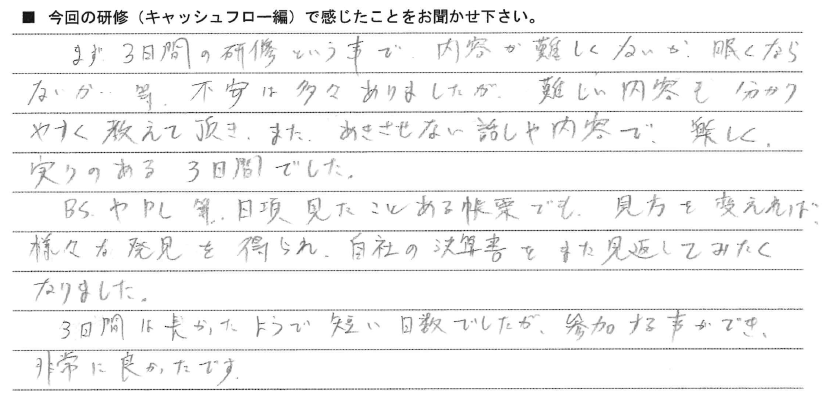 ■ 今回の研修（キャッシュフロー編）で感じたことをお聞かせ下さい。
まず 3日間の研修という事で、内容が難しくないか、眠くなら
ないか…等、不安は多々ありましたが、難しい内容も分かり
やすく教えて頂き、また、あきさせない話しや内容で、楽しく、
実りのある 3日間でした。
BS や PL 等、日頃 見たことある帳票でも、見方を変えれば、
様々な発見を得られ、自社の決算書をまた見返してみたく
なりました。
3日間は長かったようで短い日数でしたが、参加する事ができ、
非常に良かったです。